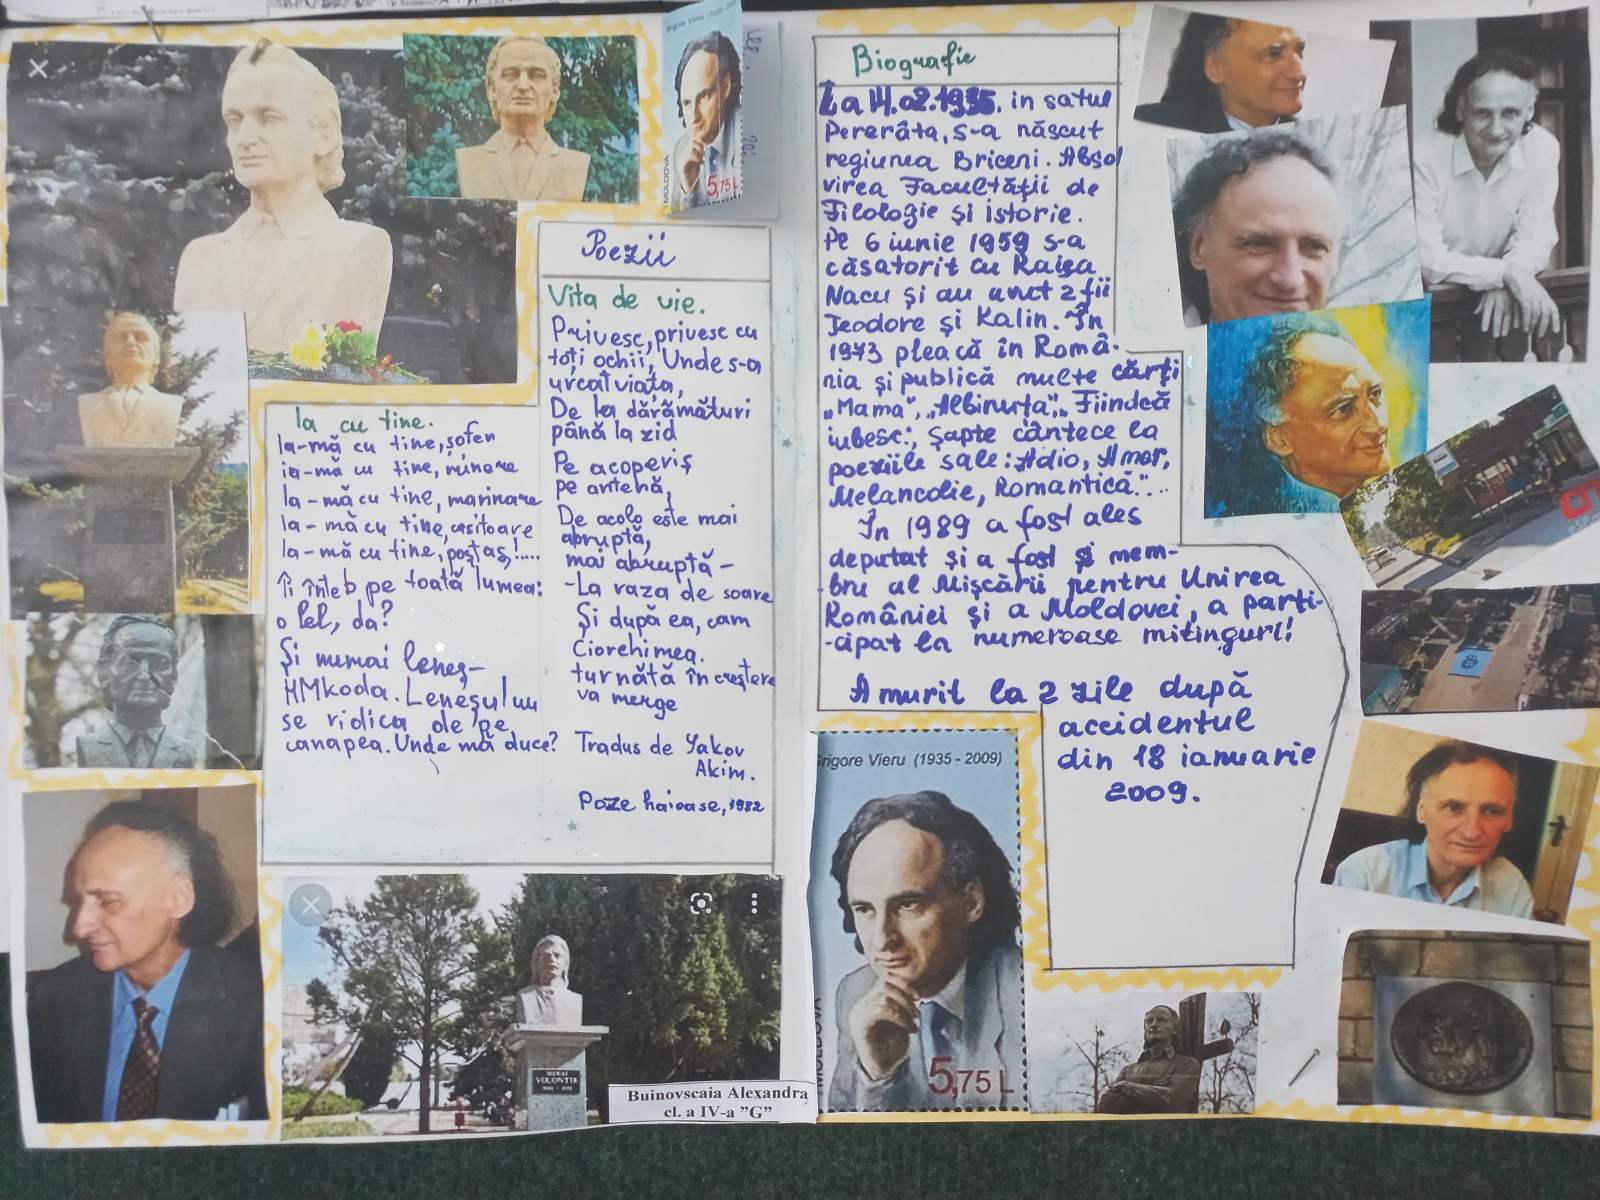 Grigore Vieru (1935 - 2009)
MOLDOVA
5,75 L
Poezii
Vița de vie.
Privesc, privesc cu
toți ochii, Unde s-a
urcat viața,
De la dărâmături
până la zid
Pe acoperiș
pe antenă,
De acolo este mai
abruptă,
mai abruptă –
- La raza de soare
Și după ea, cam
Ciorchimea.
turnată în creștere
va merge
Tradus de Yakov
Akim.
Poze haioase, 1982
Ia cu tine.
Ia-mă cu tine, șofer
ia-mă cu tine, minere
Ia-mă cu tine, marinare
Ia-mă cu tine,
Ia-mă cu tine, poștaș!....
Îi înteb pe toată lumea:
o Lel, da?
Și numai leneș-
HMkoda. Leneșul nu
se ridica de pe
canapea. Unde mă duce?
MIHAI
VOLONTIR
Buinovscaia Alexandra
cl. a IV-a "G"
Biografie
La 14.02.1935. in satul
Pererâta, s-a născut
regiunea Briceni. Absol
virea Facultății de
Filologie și istorie.
Pe 6 iunie 1959 s-a
căsatorit cu Raisa
Nacu și au avut 2 fii
Teodore și Kalin. În
1973 pleacă în Româ-
nia și publică multe cărți
„Mama", „Albinuța", Fiindcă
iubesc:, șapte cântece la
poeziile sale: Adio, Amor,
Melancolie, Romantică."...
În 1989 a fost ales
deputat și a fost și mem-
-bru al Mișcării pentru Unirea
României și a Moldovei, a parti-
-cipat la numeroase mitinguri!
A murit la 2 zile după
accidentul
din 18 ianuarie
2009.
Grigore Vieru (1935 - 2009)
MOLDOVA
5,75 L